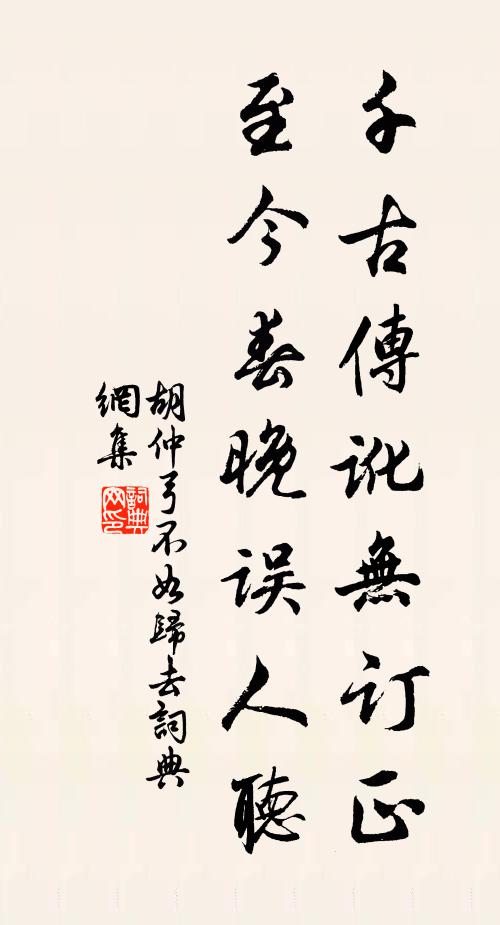 千古傳訛無訂正
至今春晚误人聽
胡仲弓不如歸去詞典
網集
詞典網印